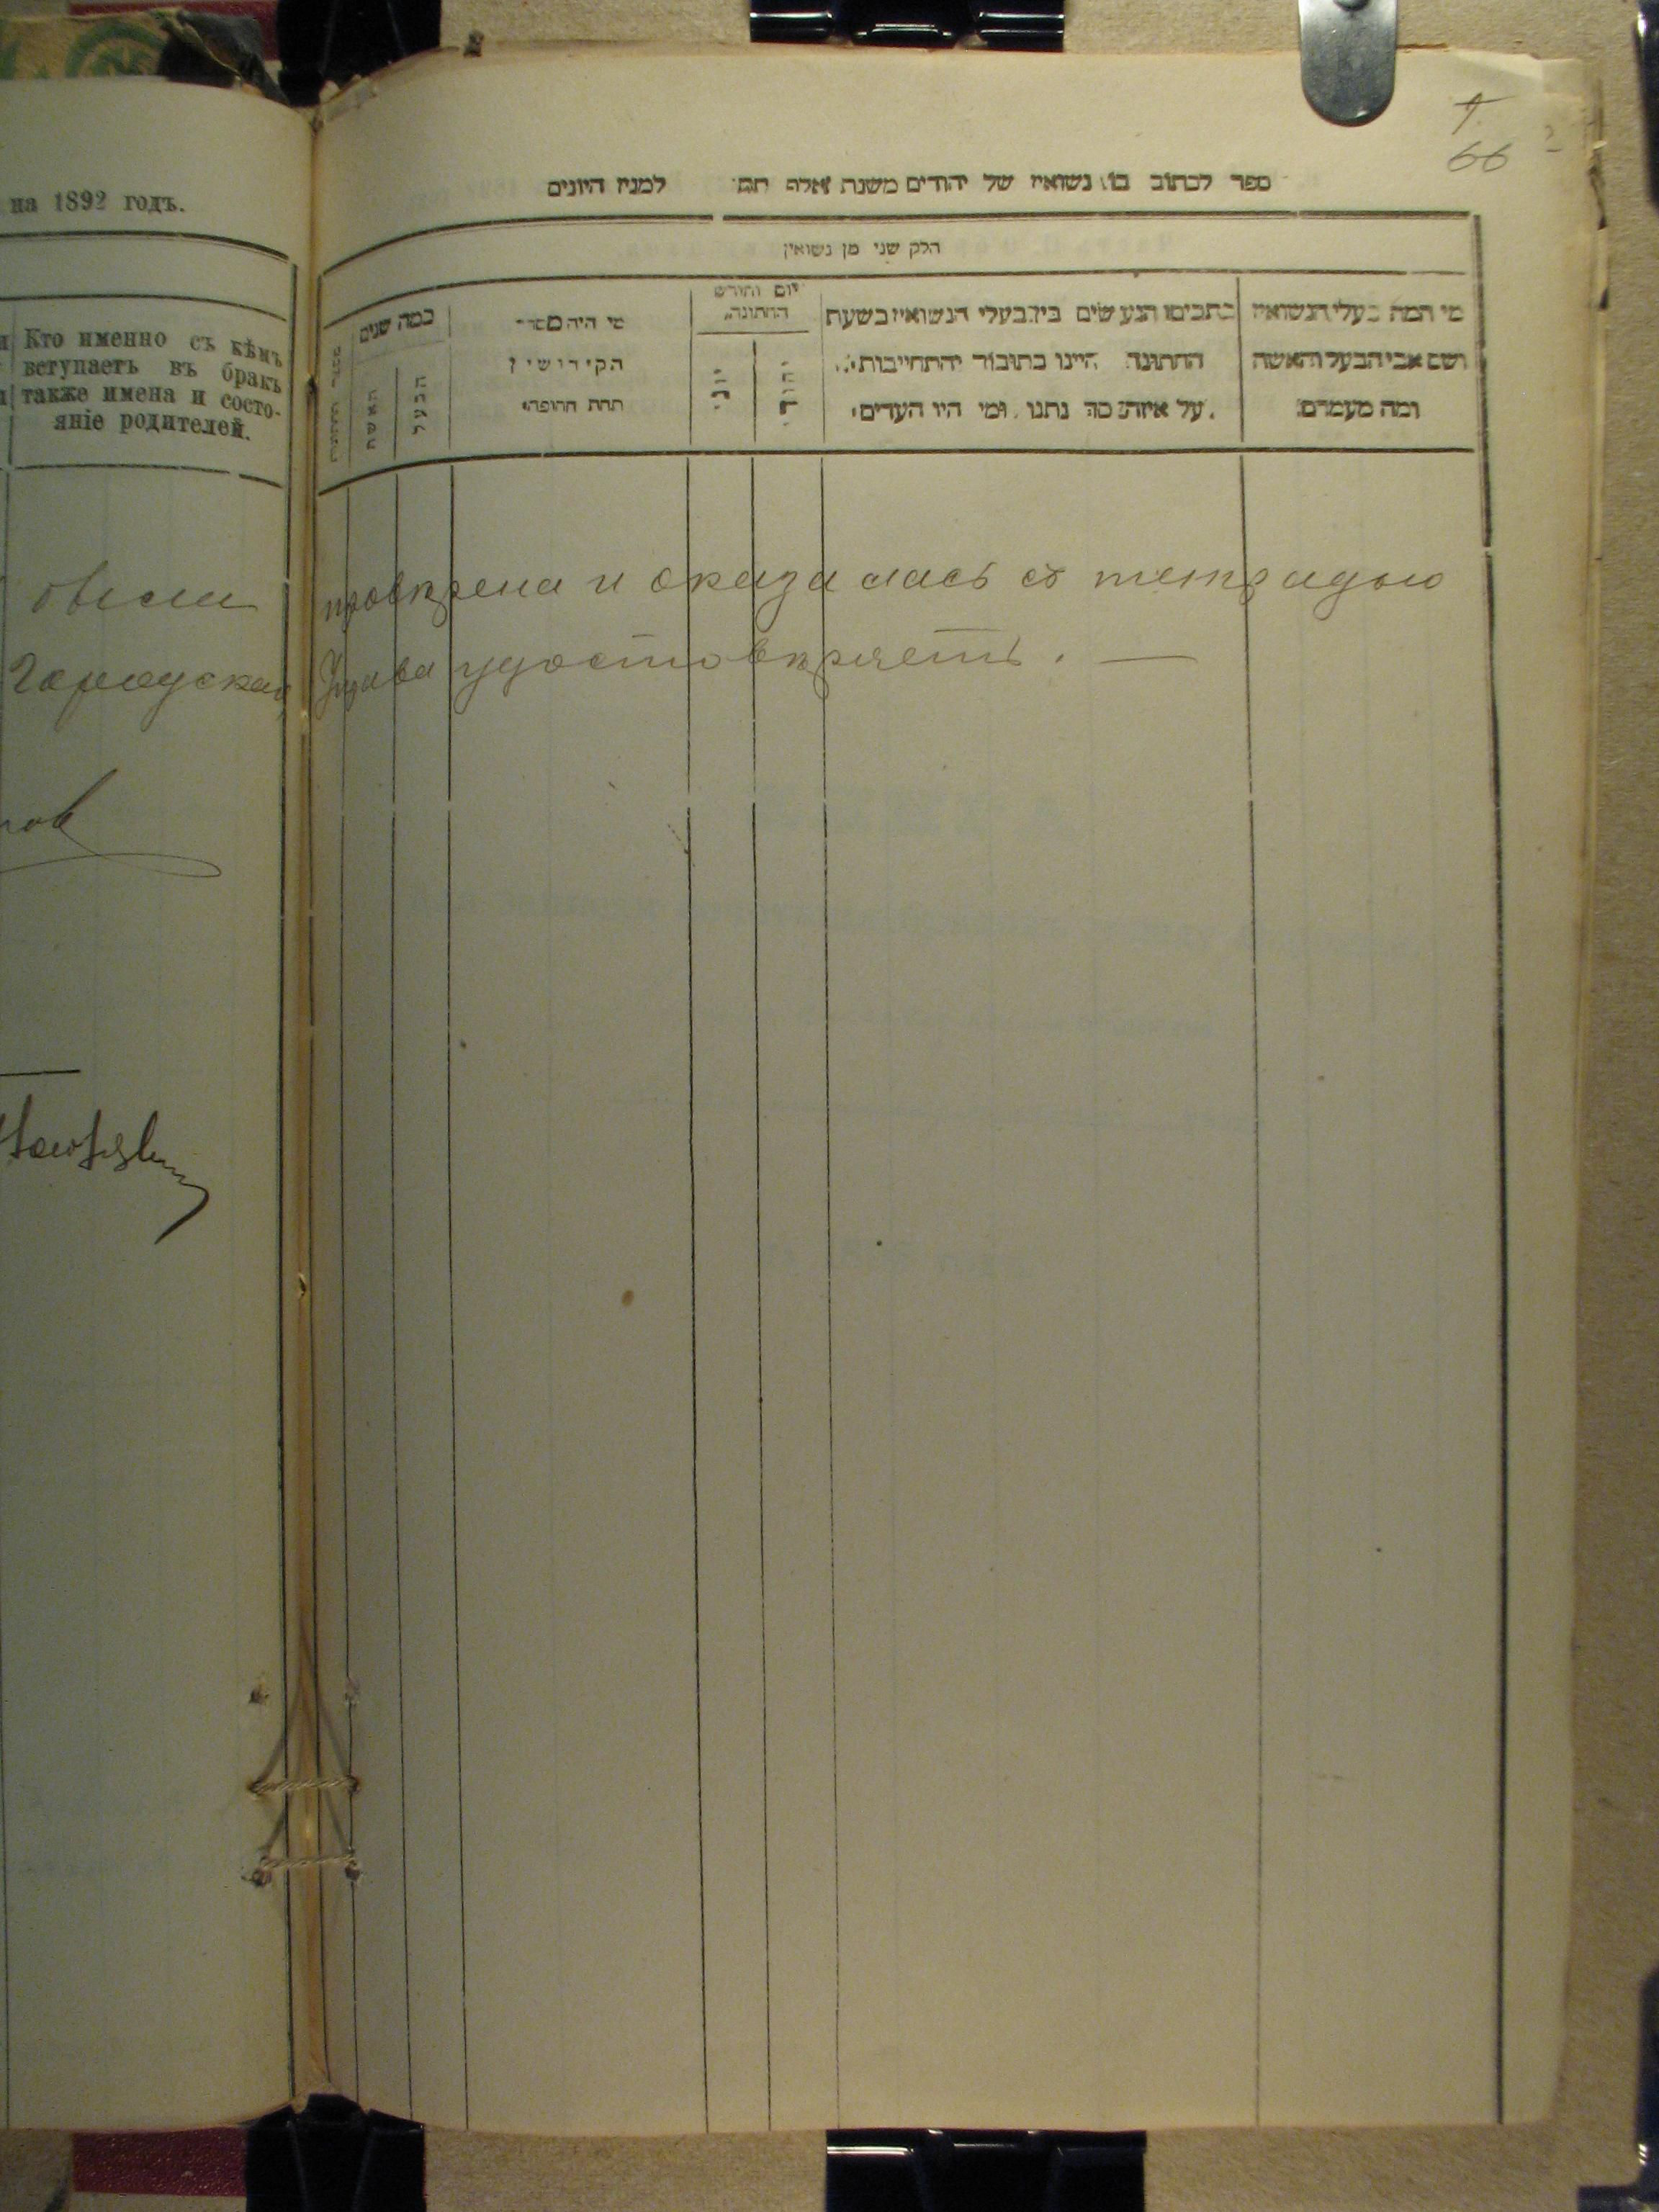 на 1892 годъ.
Кто именно съ кѣмъ
вступаетъ въ бракъ
также имена и состо-
яніе родителей.
Городская
66
ספר לכתוב בו נשואין של יהודים משנת אלף תת למנין היונים
חלק שני מן נשואין
מי המה בעלי הנשואין
ושם אבי הבעל והאשה
ומה מעמדם
הנעשים בין בעלי הנשואין בשעת
החתונה היינו בתובות והתחייבות
על איזה סך נתנו ומי היו העדים
יום וחודש
החתונה
יהודי
יוני
מי היה מסדר
הקידושין
תחת החופה
כמה שנים
הבעל
האשה
провѣрена и оказалась съ тетрадью
Управа удостовѣряетъ. —